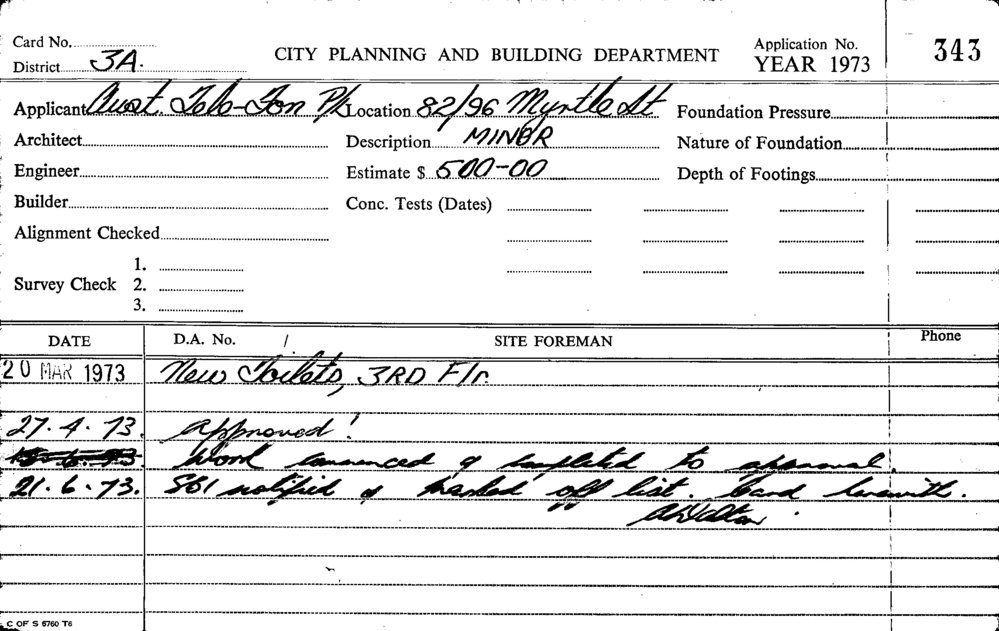 Card No.
CITY PLANNING AND BUILDING DEPARTMENT
Application No. 343
District 3A.
YEAR 1973
Applicant Aust. Tele-Fon P/L Location 82/96 Myrtle St Foundation Pressure
Architect Description MINOR Nature of Foundation
Engineer Estimate $ 500-00 Depth of Footings
Builder Conc. Tests (Dates)
Alignment Checked
1.
Survey Check 2.
3.
DATE D.A. No. / SITE FOREMAN Phone
20 MAR 1973 New Toilets, 3RD Flr.
27.4.73. Approved!
Work commenced & completed to approval.
21.6.73. SBI notified & marked off list. Card herewith.
C OF S 6760 T6